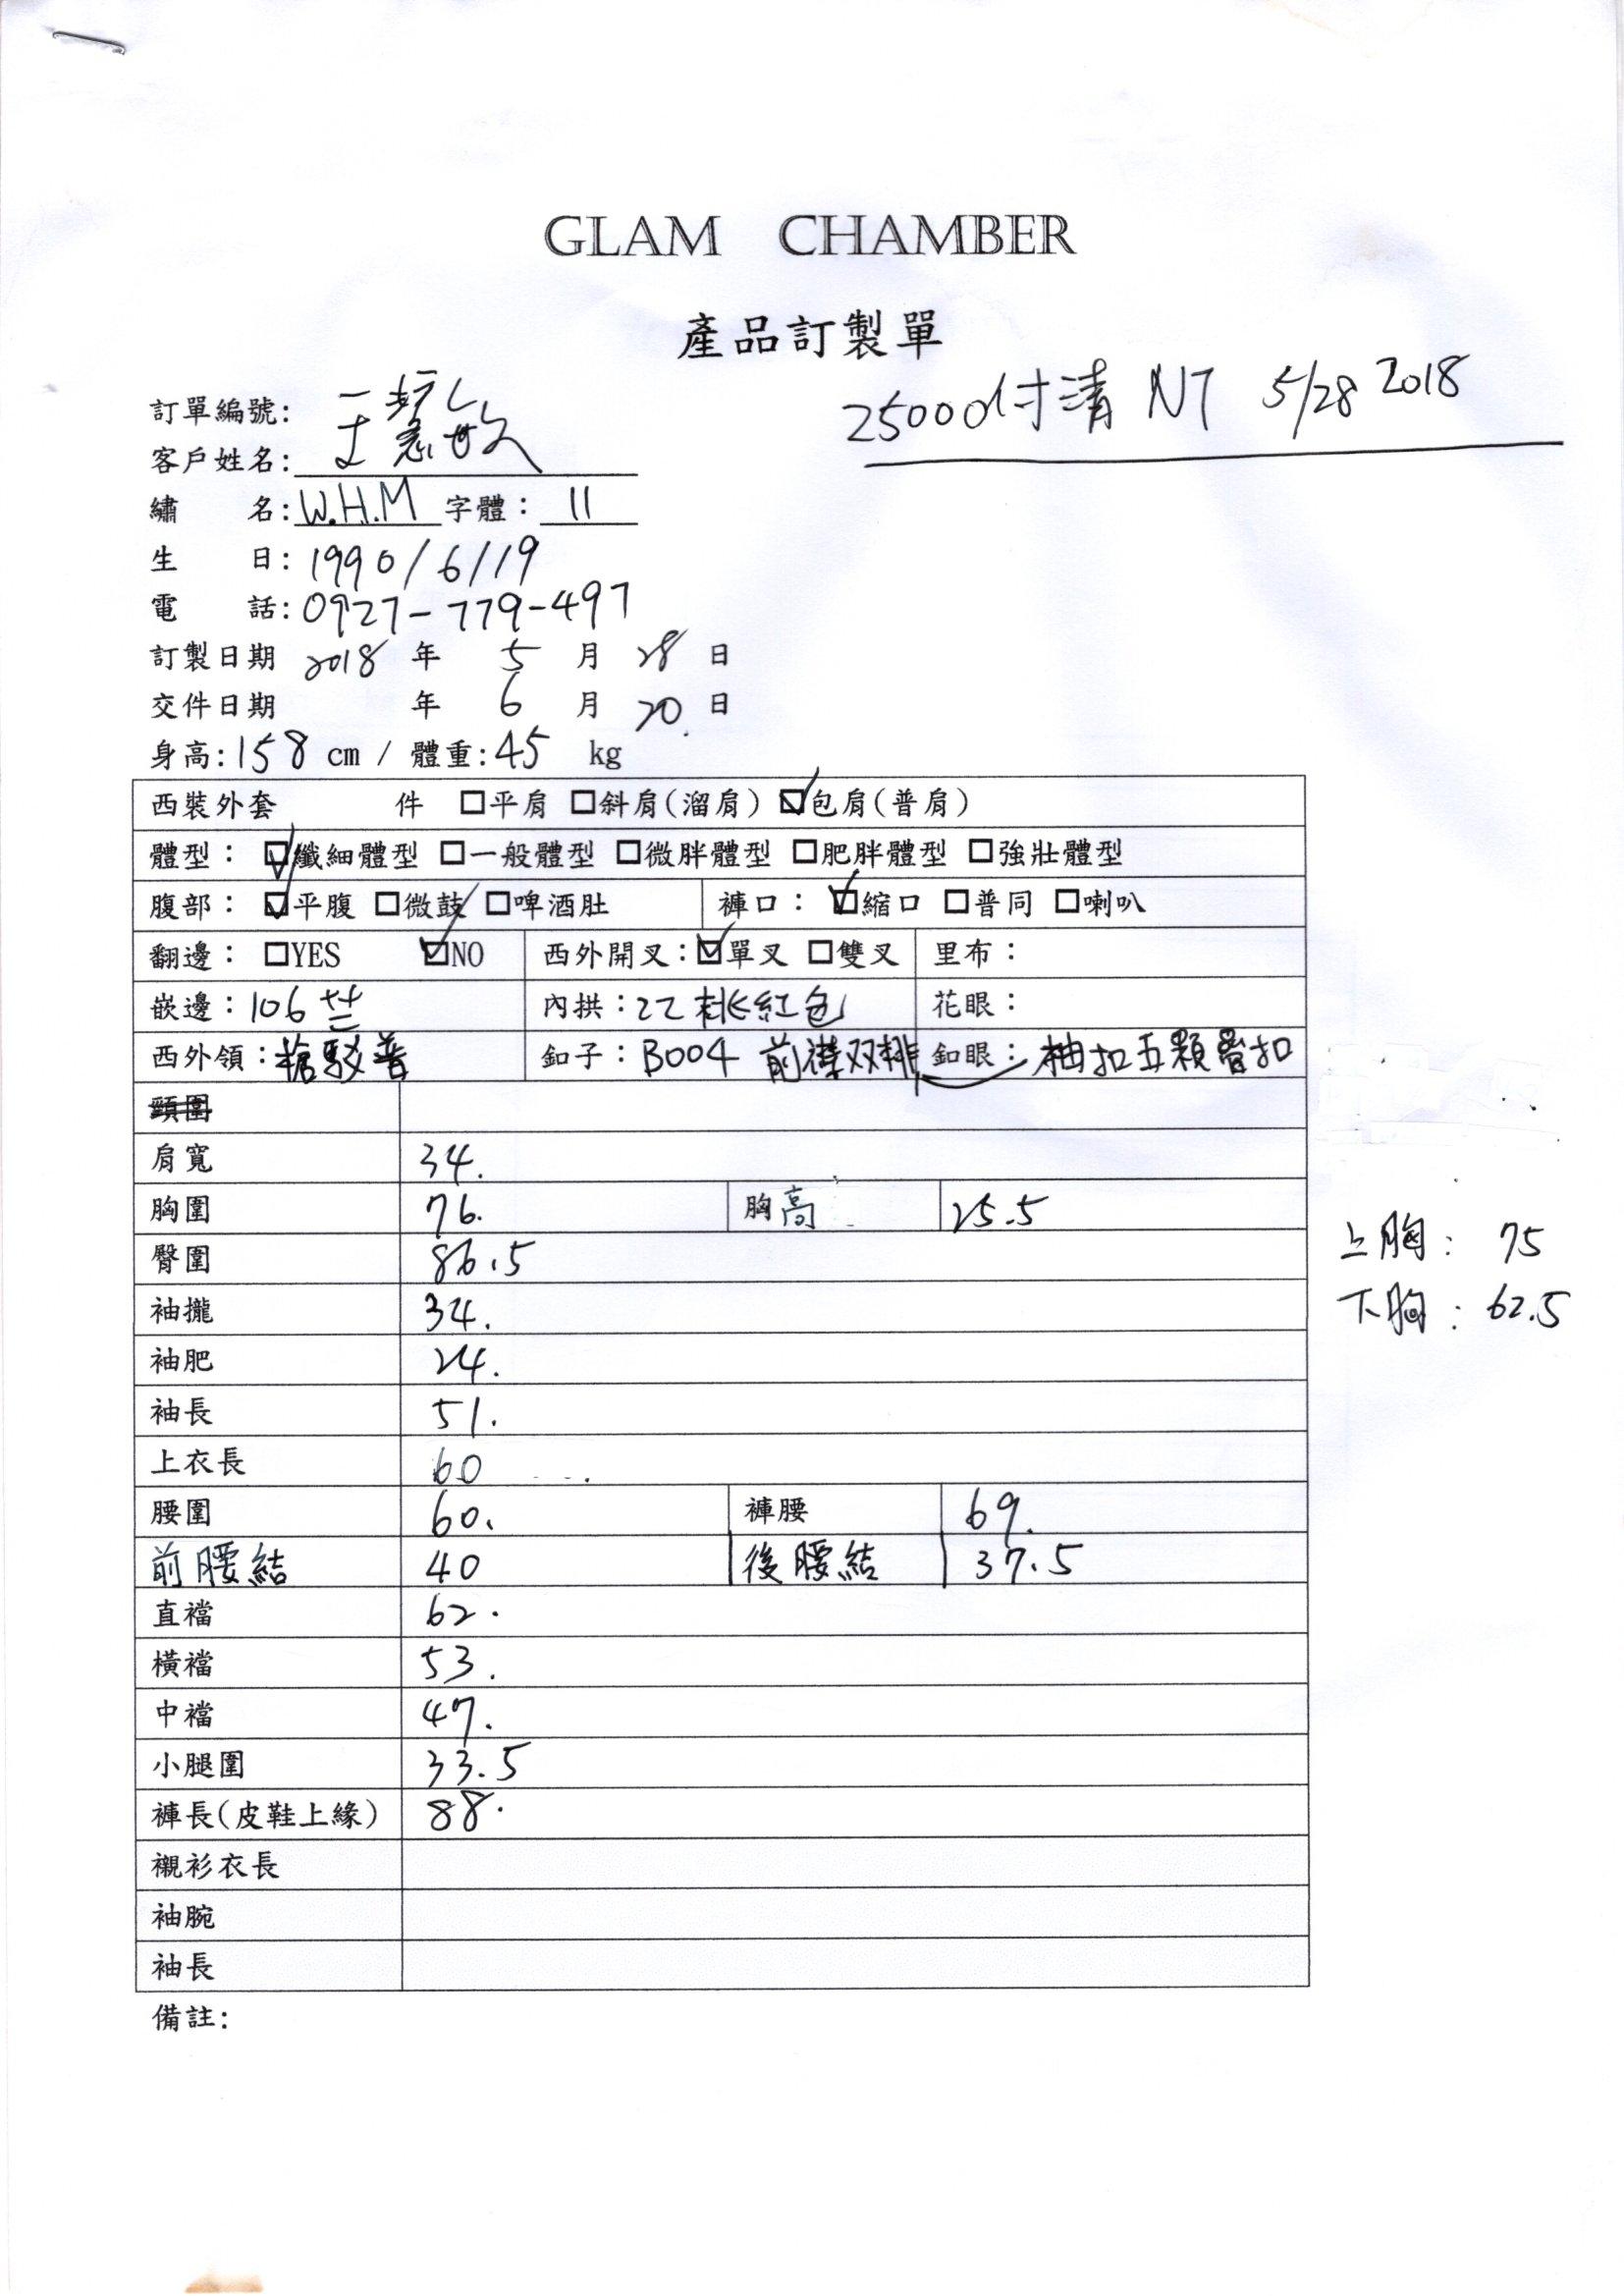 GLAM CHAMBER
產品訂製單
25000付清 NT 5/28 2018
訂單編號:
客戶姓名: 王慧敏
繡 名: W.H.M 字體: 11
生 日: 1990/6/19
電 話: 0927-779-497
訂製日期 2018 年 5 月 28 日
交件日期 年 6 月 20. 日
身高: 158 cm / 體重: 45 kg
西裝外套 件 □平肩 □斜肩(溜肩) ☑包肩(普肩)
體型: ☑纖細體型 □一般體型 □微胖體型 □肥胖體型 □強壯體型
腹部: ☑平腹 □微鼓 □啤酒肚 褲口: ☑縮口 □普同 □喇叭
翻邊: □YES ☑NO 西外開叉: ☑單叉 □雙叉 里布:
嵌邊: 106 內拱: 22 桃紅色 花眼:
西外領: 槍駁 釦子: B004 前襟双排 釦眼: 袖扣五顆疊扣
頸圍
肩寬 34.
胸圍 76. 胸高 25.5
上胸: 75
臀圍 86.5
下胸: 62.5
袖攏 34.
袖肥 24.
袖長 51.
上衣長 60
腰圍 60. 褲腰 69.
前腰結 40 後腰結 37.5
直襠 62.
橫襠 53.
中襠 47.
小腿圍 33.5
褲長(皮鞋上緣) 88.
襯衫衣長
袖腕
袖長
備註: